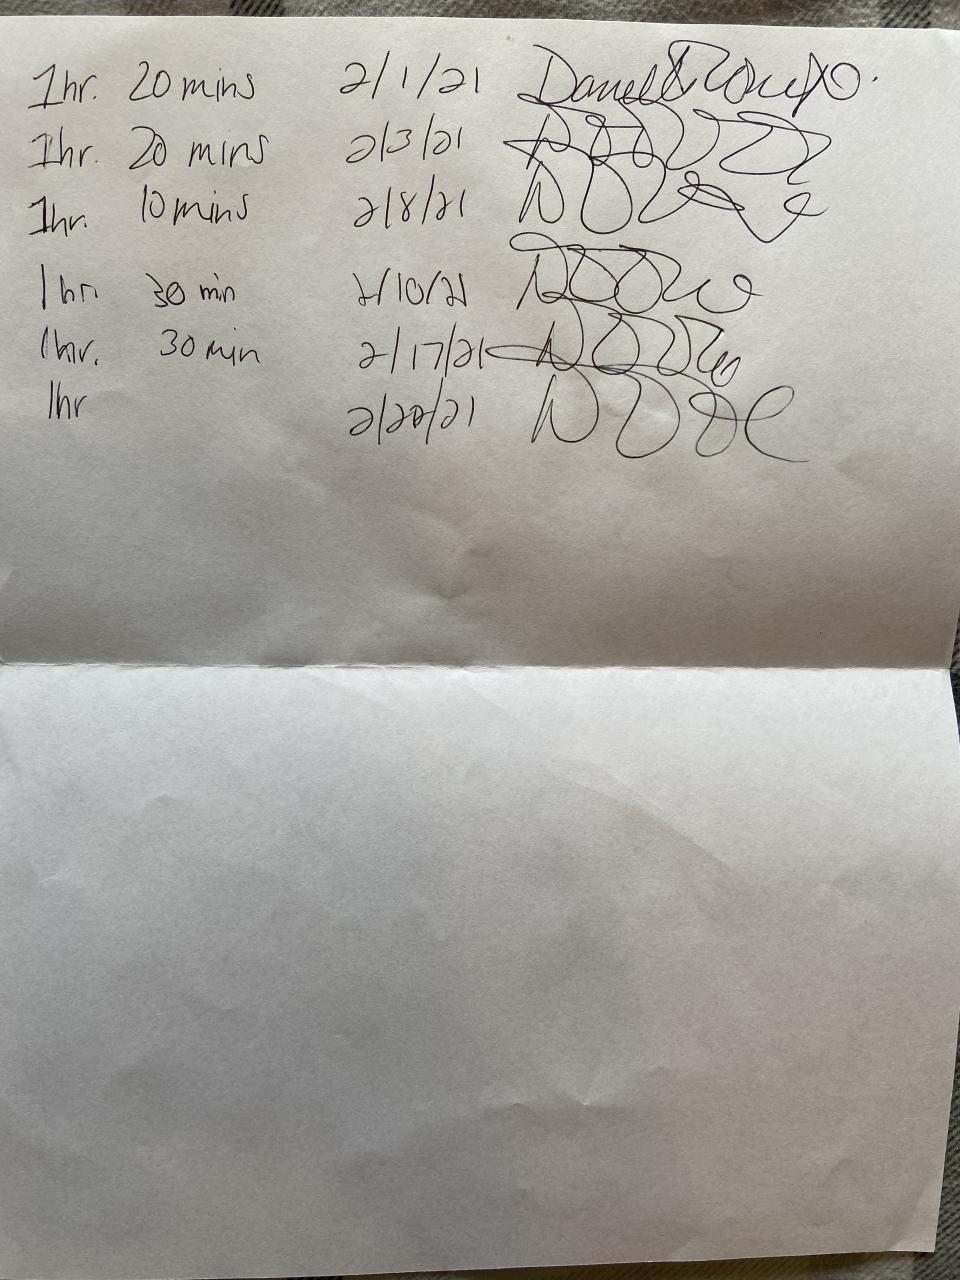 1hr. 20 mins 2/1/21
1hr. 20 mins 2/3/21
1hr. 10 mins 2/8/21
1hr. 30 min 2/10/21
1hr. 30 min 2/17/21
1hr 2/20/21